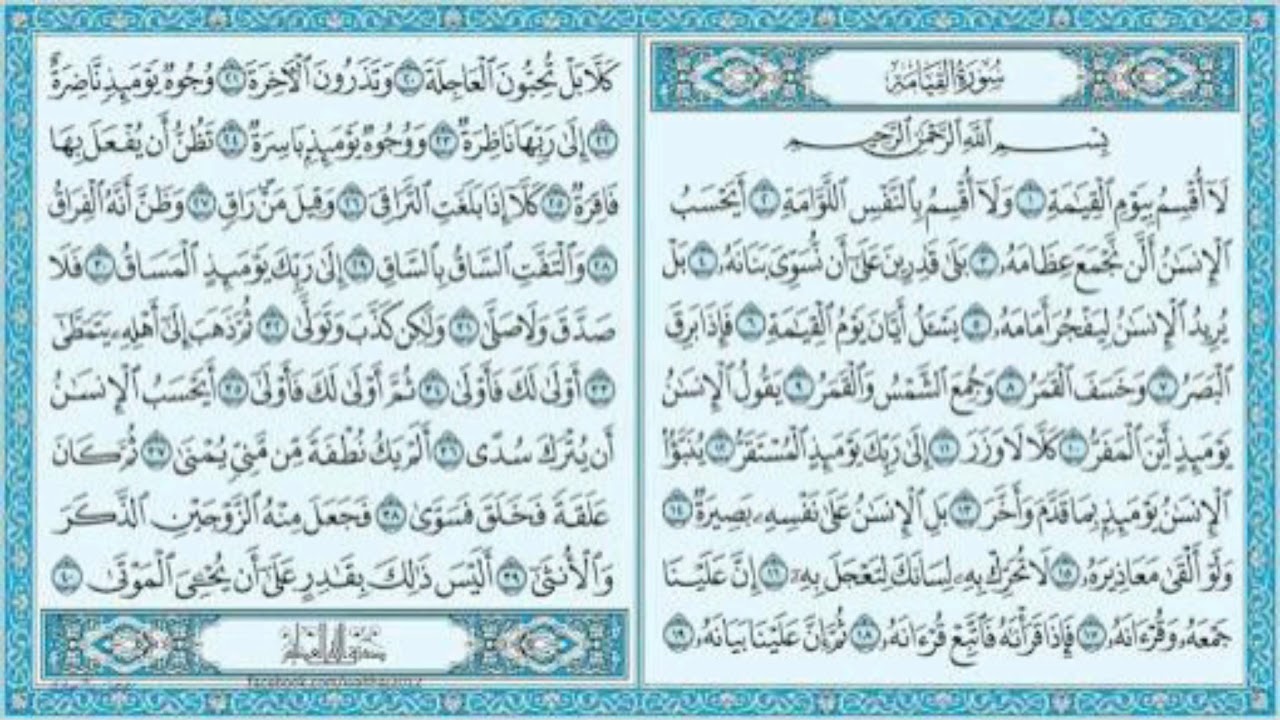 سُورَةُ الْقِيَامَةِ
بِسْمِ اللَّهِ الرَّحْمَٰنِ الرَّحِيمِ
لَآ أُقْسِمُ بِيَوْمِ الْقِيَٰمَةِ ١ وَلَآ أُقْسِمُ بِالنَّفْسِ اللَّوَّامَةِ ٢ أَيَحْسَبُ
الْإِنسَٰنُ أَلَّن نَّجْمَعَ عِظَامَهُۥ ٣ بَلَىٰ قَٰدِرِينَ عَلَىٰٓ أَن نُّسَوِّىَ بَنَانَهُۥ ٤ بَلْ
يُرِيدُ الْإِنسَٰنُ لِيَفْجُرَ أَمَامَهُۥ ٥ يَسْـَٔلُ أَيَّانَ يَوْمُ الْقِيَٰمَةِ ٦ فَإِذَا بَرِقَ
الْبَصَرُ ٧ وَخَسَفَ الْقَمَرُ ٨ وَجُمِعَ الشَّمْسُ وَالْقَمَرُ ٩ يَقُولُ الْإِنسَٰنُ
يَوْمَئِذٍ أَيْنَ الْمَفَرُّ ١٠ كَلَّا لَا وَزَرَ ١١ إِلَىٰ رَبِّكَ يَوْمَئِذٍ الْمُسْتَقَرُّ ١٢ يُنَبَّؤُا۟
الْإِنسَٰنُ يَوْمَئِذٍۭ بِمَا قَدَّمَ وَأَخَّرَ ١٣ بَلِ الْإِنسَٰنُ عَلَىٰ نَفْسِهِۦ بَصِيرَةٌ ١٤
وَلَوْ أَلْقَىٰ مَعَاذِيرَهُۥ ١٥ لَا تُحَرِّكْ بِهِۦ لِسَانَكَ لِتَعْجَلَ بِهِۦٓ ١٦ إِنَّ عَلَيْنَا
جَمْعَهُۥ وَقُرْءَانَهُۥ ١٧ فَإِذَا قَرَأْنَٰهُ فَاتَّبِعْ قُرْءَانَهُۥ ١٨ ثُمَّ إِنَّ عَلَيْنَا بَيَانَهُۥ ١٩
كَلَّا بَلْ تُحِبُّونَ الْعَاجِلَةَ ٢٠ وَتَذَرُونَ الْءَاخِرَةَ ٢١ وُجُوهٌ يَوْمَئِذٍ نَّاضِرَةٌ
٢٢ إِلَىٰ رَبِّهَا نَاظِرَةٌ ٢٣ وَوُجُوهٌ يَوْمَئِذٍۭ بَاسِرَةٌ ٢٤ تَظُنُّ أَن يُفْعَلَ بِهَا
فَاقِرَةٌ ٢٥ كَلَّآ إِذَا بَلَغَتِ التَّرَاقِىَ ٢٦ وَقِيلَ مَنْ رَاقٍ ٢٧ وَظَنَّ أَنَّهُ الْفِرَاقُ
٢٨ وَالْتَفَّتِ السَّاقُ بِالسَّاقِ ٢٩ إِلَىٰ رَبِّكَ يَوْمَئِذٍ الْمَسَاقُ ٣٠ فَلَا
صَدَّقَ وَلَا صَلَّىٰ ٣١ وَلَٰكِن كَذَّبَ وَتَوَلَّىٰ ٣٢ ثُمَّ ذَهَبَ إِلَىٰٓ أَهْلِهِۦ يَتَمَطَّىٰٓ
٣٣ أَوْلَىٰ لَكَ فَأَوْلَىٰ ٣٤ ثُمَّ أَوْلَىٰ لَكَ فَأَوْلَىٰٓ ٣٥ أَيَحْسَبُ الْإِنسَٰنُ
أَن يُتْرَكَ سُدًى ٣٦ أَلَمْ يَكُ نُطْفَةً مِّن مَّنِىٍّ يُمْنَىٰ ٣٧ ثُمَّ كَانَ
عَلَقَةً فَخَلَقَ فَسَوَّىٰ ٣٨ فَجَعَلَ مِنْهُ الزَّوْجَيْنِ الذَّكَرَ
وَالْأُنثَىٰٓ ٣٩ أَلَيْسَ ذَٰلِكَ بِقَٰدِرٍ عَلَىٰٓ أَن يُحْۦِىَ الْمَوْتَىٰ ٤٠
صدق الله العظيم